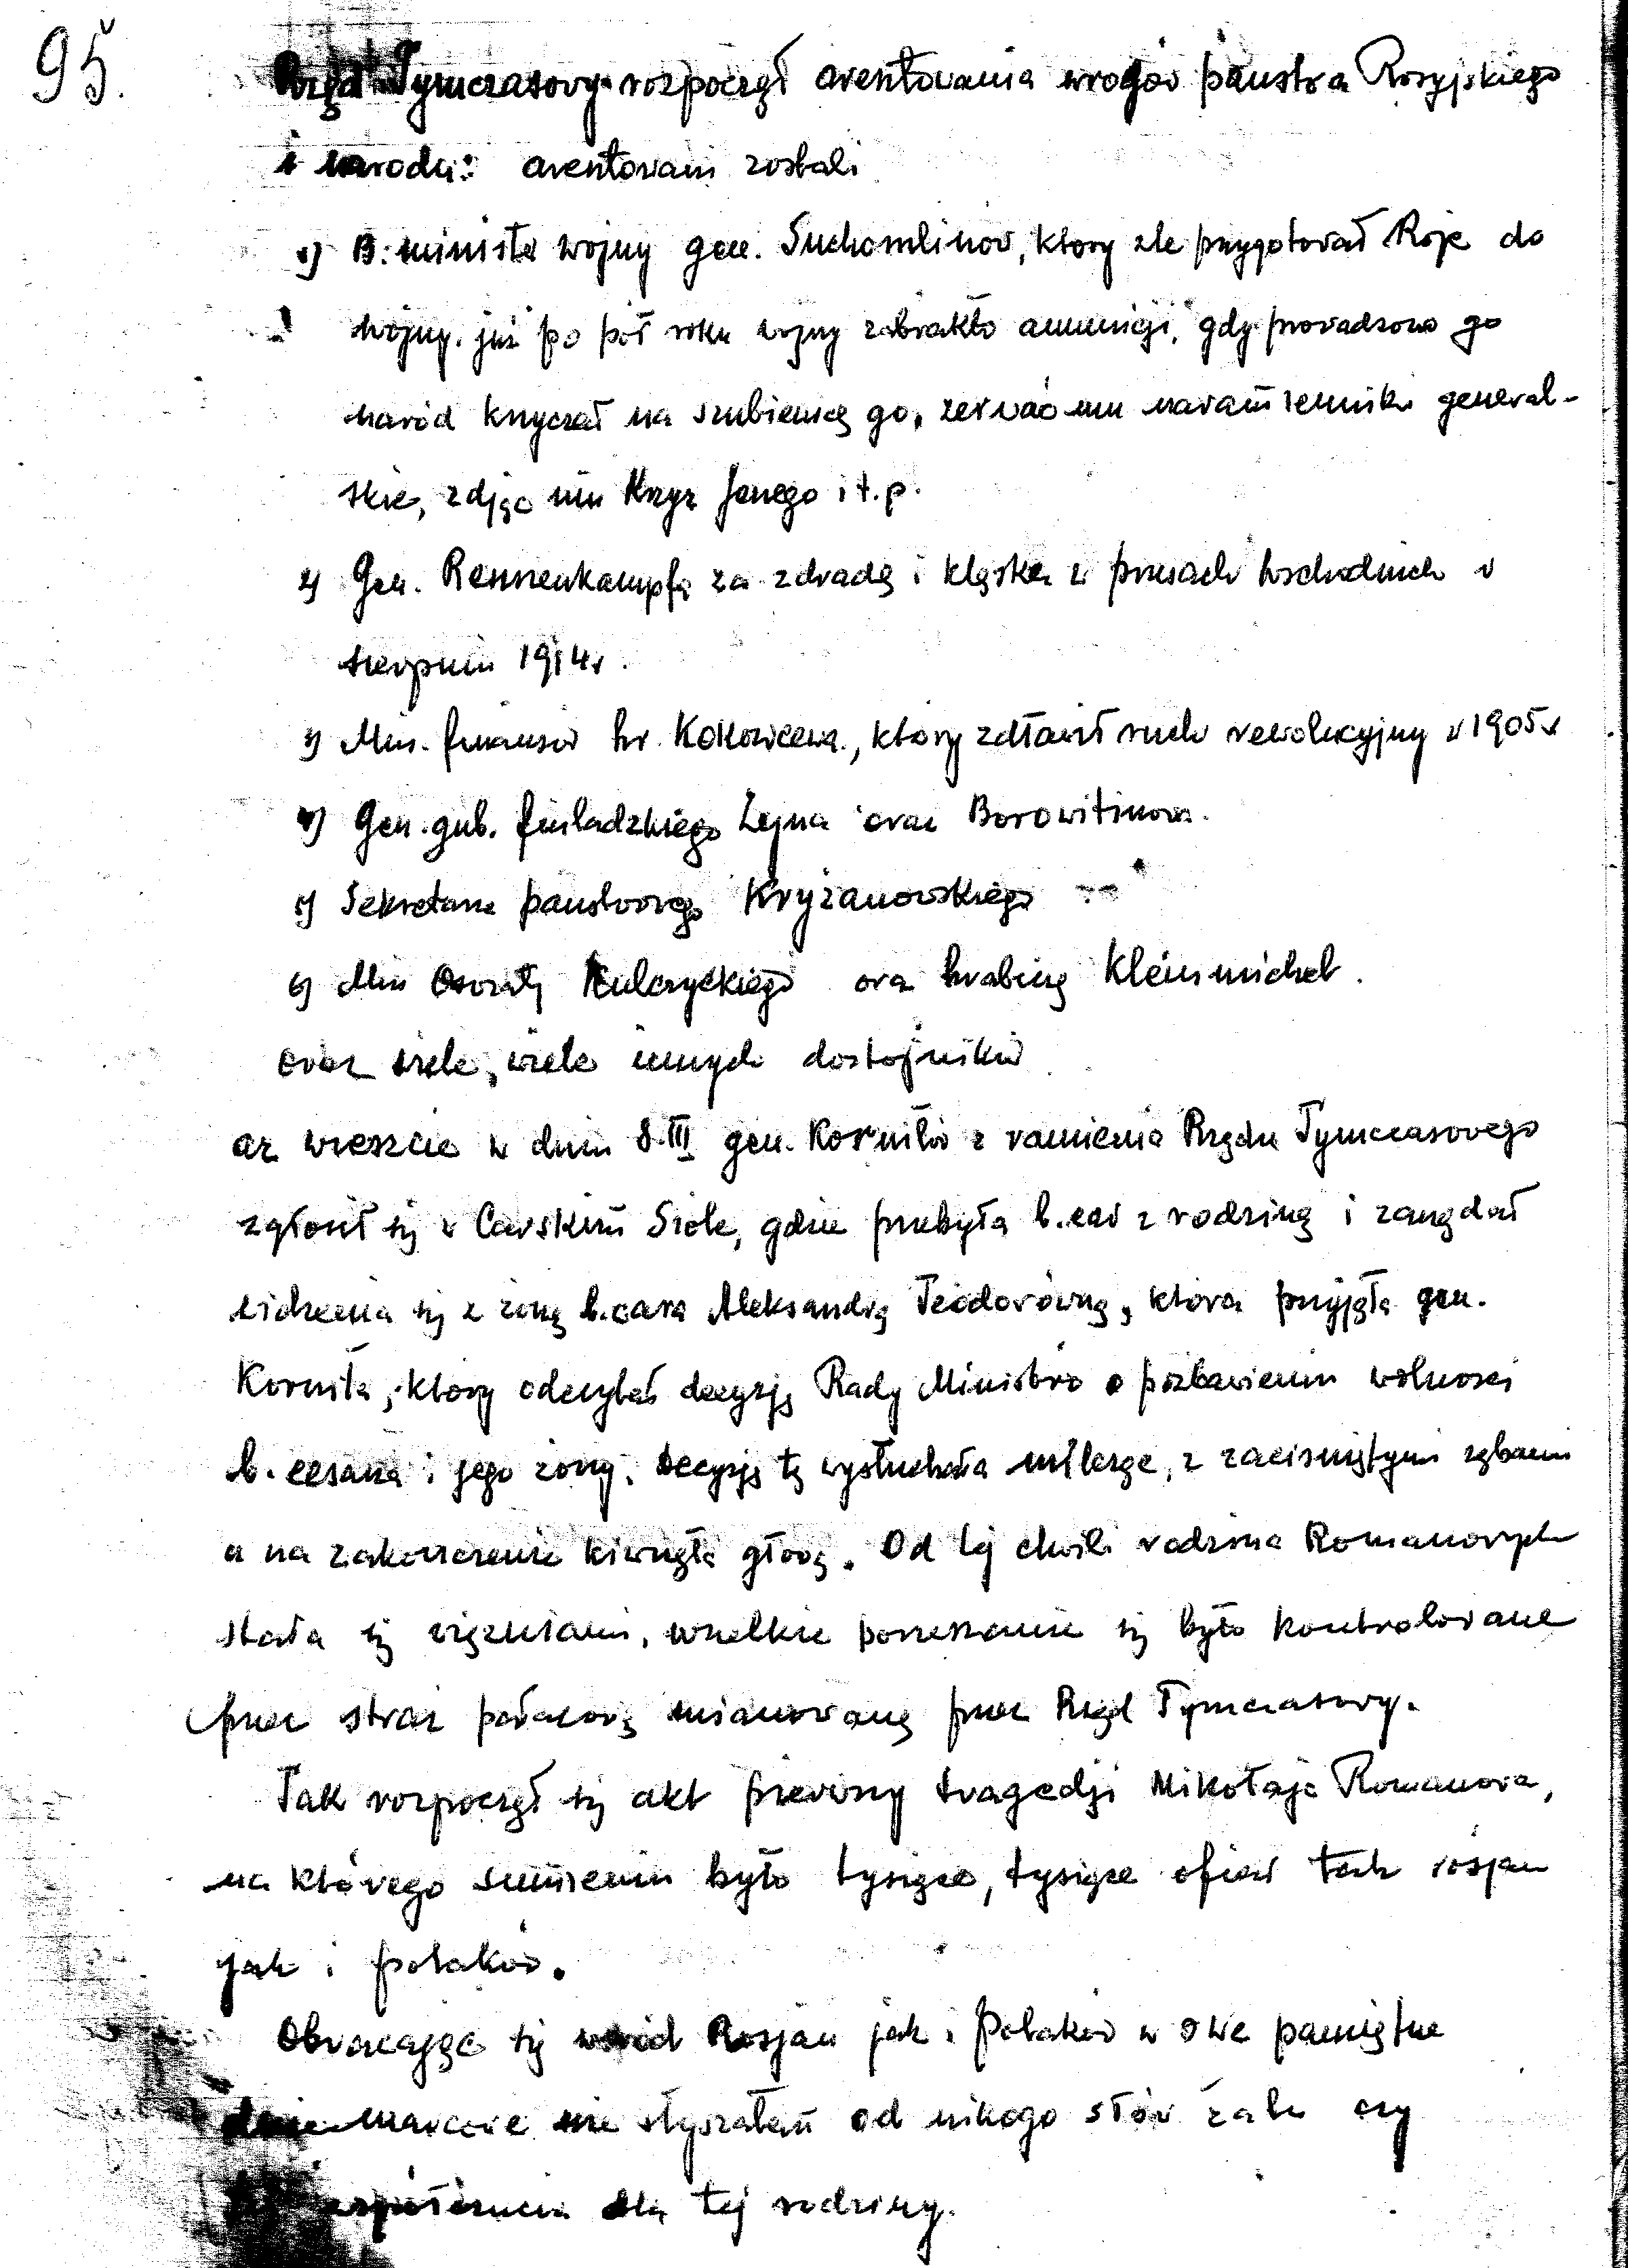 95.
Rząd Tymczasowy rozpoczął aresztowania wrogów państwa Rosyjskiego
i narodu: aresztowani zostali
1) B. minister wojny gen. Suchomlinow, ktory zle przygotował Rosje do
wojny. już po pół roku wojny zabrakło amunicji, gdy prowadzono go
naród krzyczał na szubienicę go, zerwać mu naramienniki general-
skie, zdjąc mu Krzyz Jerzego i t.p.
2) Gen. Rennenkampfa za zdradę i klęskę w prusach wschodnich w
sierpniu 1914r.
3) Min. finansów hr. Kokowcewa, który zdławił ruch rewolucyjny w 1905r
4) Gen. gub. finladzkiego Zejna oraz Borowitinowa.
5) Sekretarza panstwowego Kryżanowskiego
6) Min Oswiaty Kulczyckiego oraz hrabinę Kleinmichel.
oraz wiele, wiele innych dostojników
az wreszcie w dniu 8.III gen. Korniłow z ramienia Rządu Tymczasowego
zgłosił się w Carskim Siole, gdzie przebyła b. car z rodziną i zarządał
widzenia się z żoną b. cara Aleksandrą Teodorówną, ktora przyjęła gen.
Korniła, ktory odczytał decyzję Rady Ministrów o pozbawieniu wolnosci
b. cesarza i jego żony. Decyzję tę wysłuchała milcząc, z zacisniętymi zębami
a na zakonczenie kiwnęła głową. Od tej chwili rodzina Romanowych
stała się więzniami, wszelkie poruszanie się było kontrolowane
przez straż pałacową mianowaną przez Rząd Tymczasowy.
Tak rozpoczął się akt pierwszy tragedji Mikołaja Romanowa,
na którego sumieniu było tysiące, tysiące ofiar tak rosjan
jak i polaków.
Obracając się wsród Rosjan jak i Polaków w owe pamiętne
dnie marcowe nie słyszałem od nikogo słów żalu czy
współczucia dla tej rodziny.